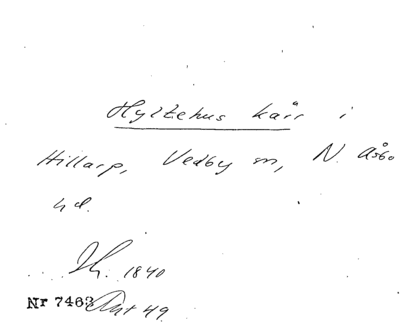 Hyltehus kärr i
Hillarp, Vedby sn, N. Åsbo
hd.
Th. 1840
Nr 7463 Ant 49